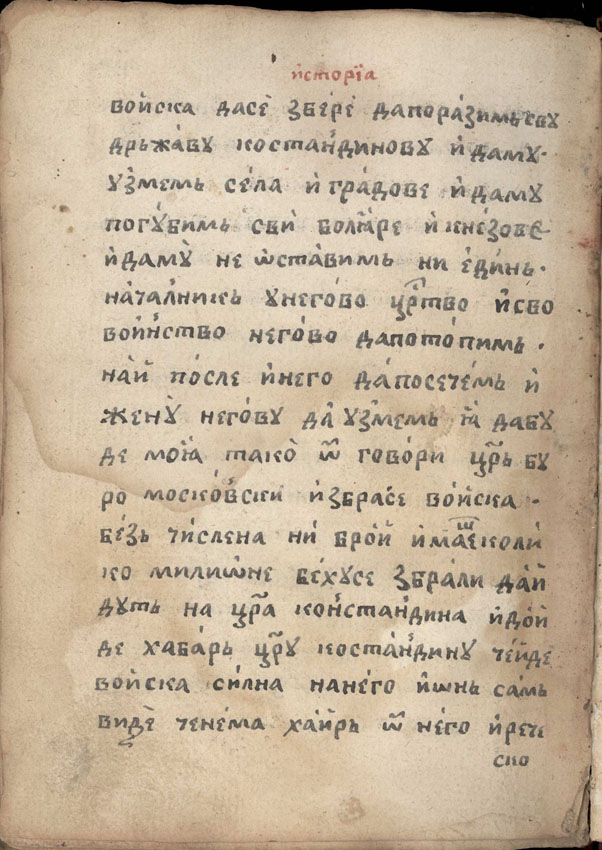 и҆сторїа
воиска дасе҆ збе́ре̏ дапора́зимь сву
дрьжа́ву коста́н꙽динову и҆ даму·
узмемь се́ла и҆ гра́дове и҆ даму
погу́бимь сви̏ болꙗре и҆ кнезове
и҆ даму̏ не ѡ҆ста́вимь ни еди́нь·
нача́лникь у него́во цр҃тво и҆ сво
вои́н꙽ство него́во дапото́пимь ·
на́й по́сле и҆ него да́посечемь и҆
жену̏ него́ву да̏ узмемь ꙗ҆̀ дабу
де моꙗ̏ тако̀ ѿ говори цр҃ь бу
ро моско́вски и҆збра́се во́йска ·
бе́зь чи́слена ни̏ бро́й и҆маⷲ҇е коли́
ко милиѡ́не бе́хусе збра́ли да́й
дуть на цр҃а кон꙽ста́н꙽дина и҆до́й
де хаба́рь цр҃у коста́н꙽дину че́йде
во́йска си́лна нане́го и҆ѡнь са́мь
виде̏ ченема ха́йрь ѿ не́го и҆рече
ско